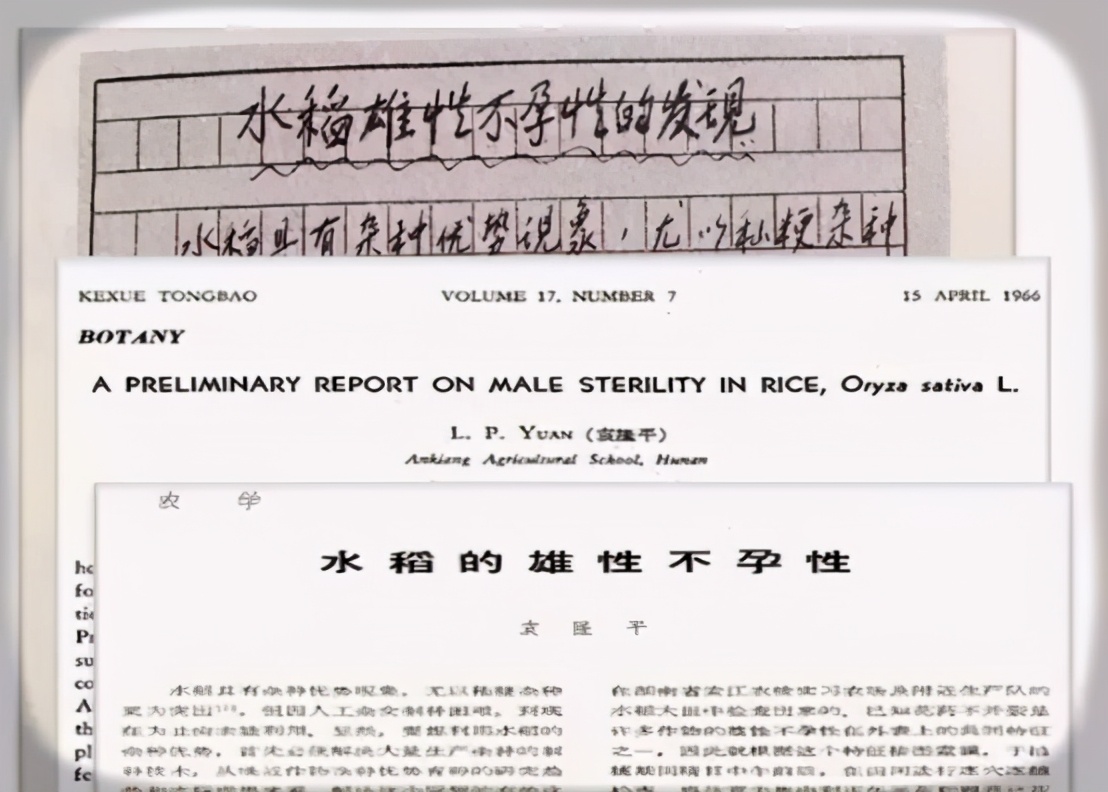 水稻雄性不孕性的发现
水稻具有杂种优势现象，尤以籼粳杂种
KEXUE TONGBAO VOLUME 17, NUMBER 7 15 APRIL 1966
BOTANY
A PRELIMINARY REPORT ON MALE STERILITY IN RICE, Oryza sativa L.
L. P. YUAN (袁隆平)
Ankiang Agricultural School, Hunan
农 学
水稻的雄性不孕性
袁 隆 平
水稻具有杂种优势现象，尤以籼粳杂种
更为突出，但因人工杂交制种困难，到现
在为止尚未能利用。显然，要想利用水稻的
杂种优势，首先必须解决大量生产杂种的制
种技术，从晚近作物杂种优势育种的研究趋
在湖南省安江农校实习农场及附近生产队的
水稻大田中检查出来的。已知花药不开裂是
许多作物的雄性不孕性在外表上的共同特征
之一，因此就根据这个特征按图索骥，于